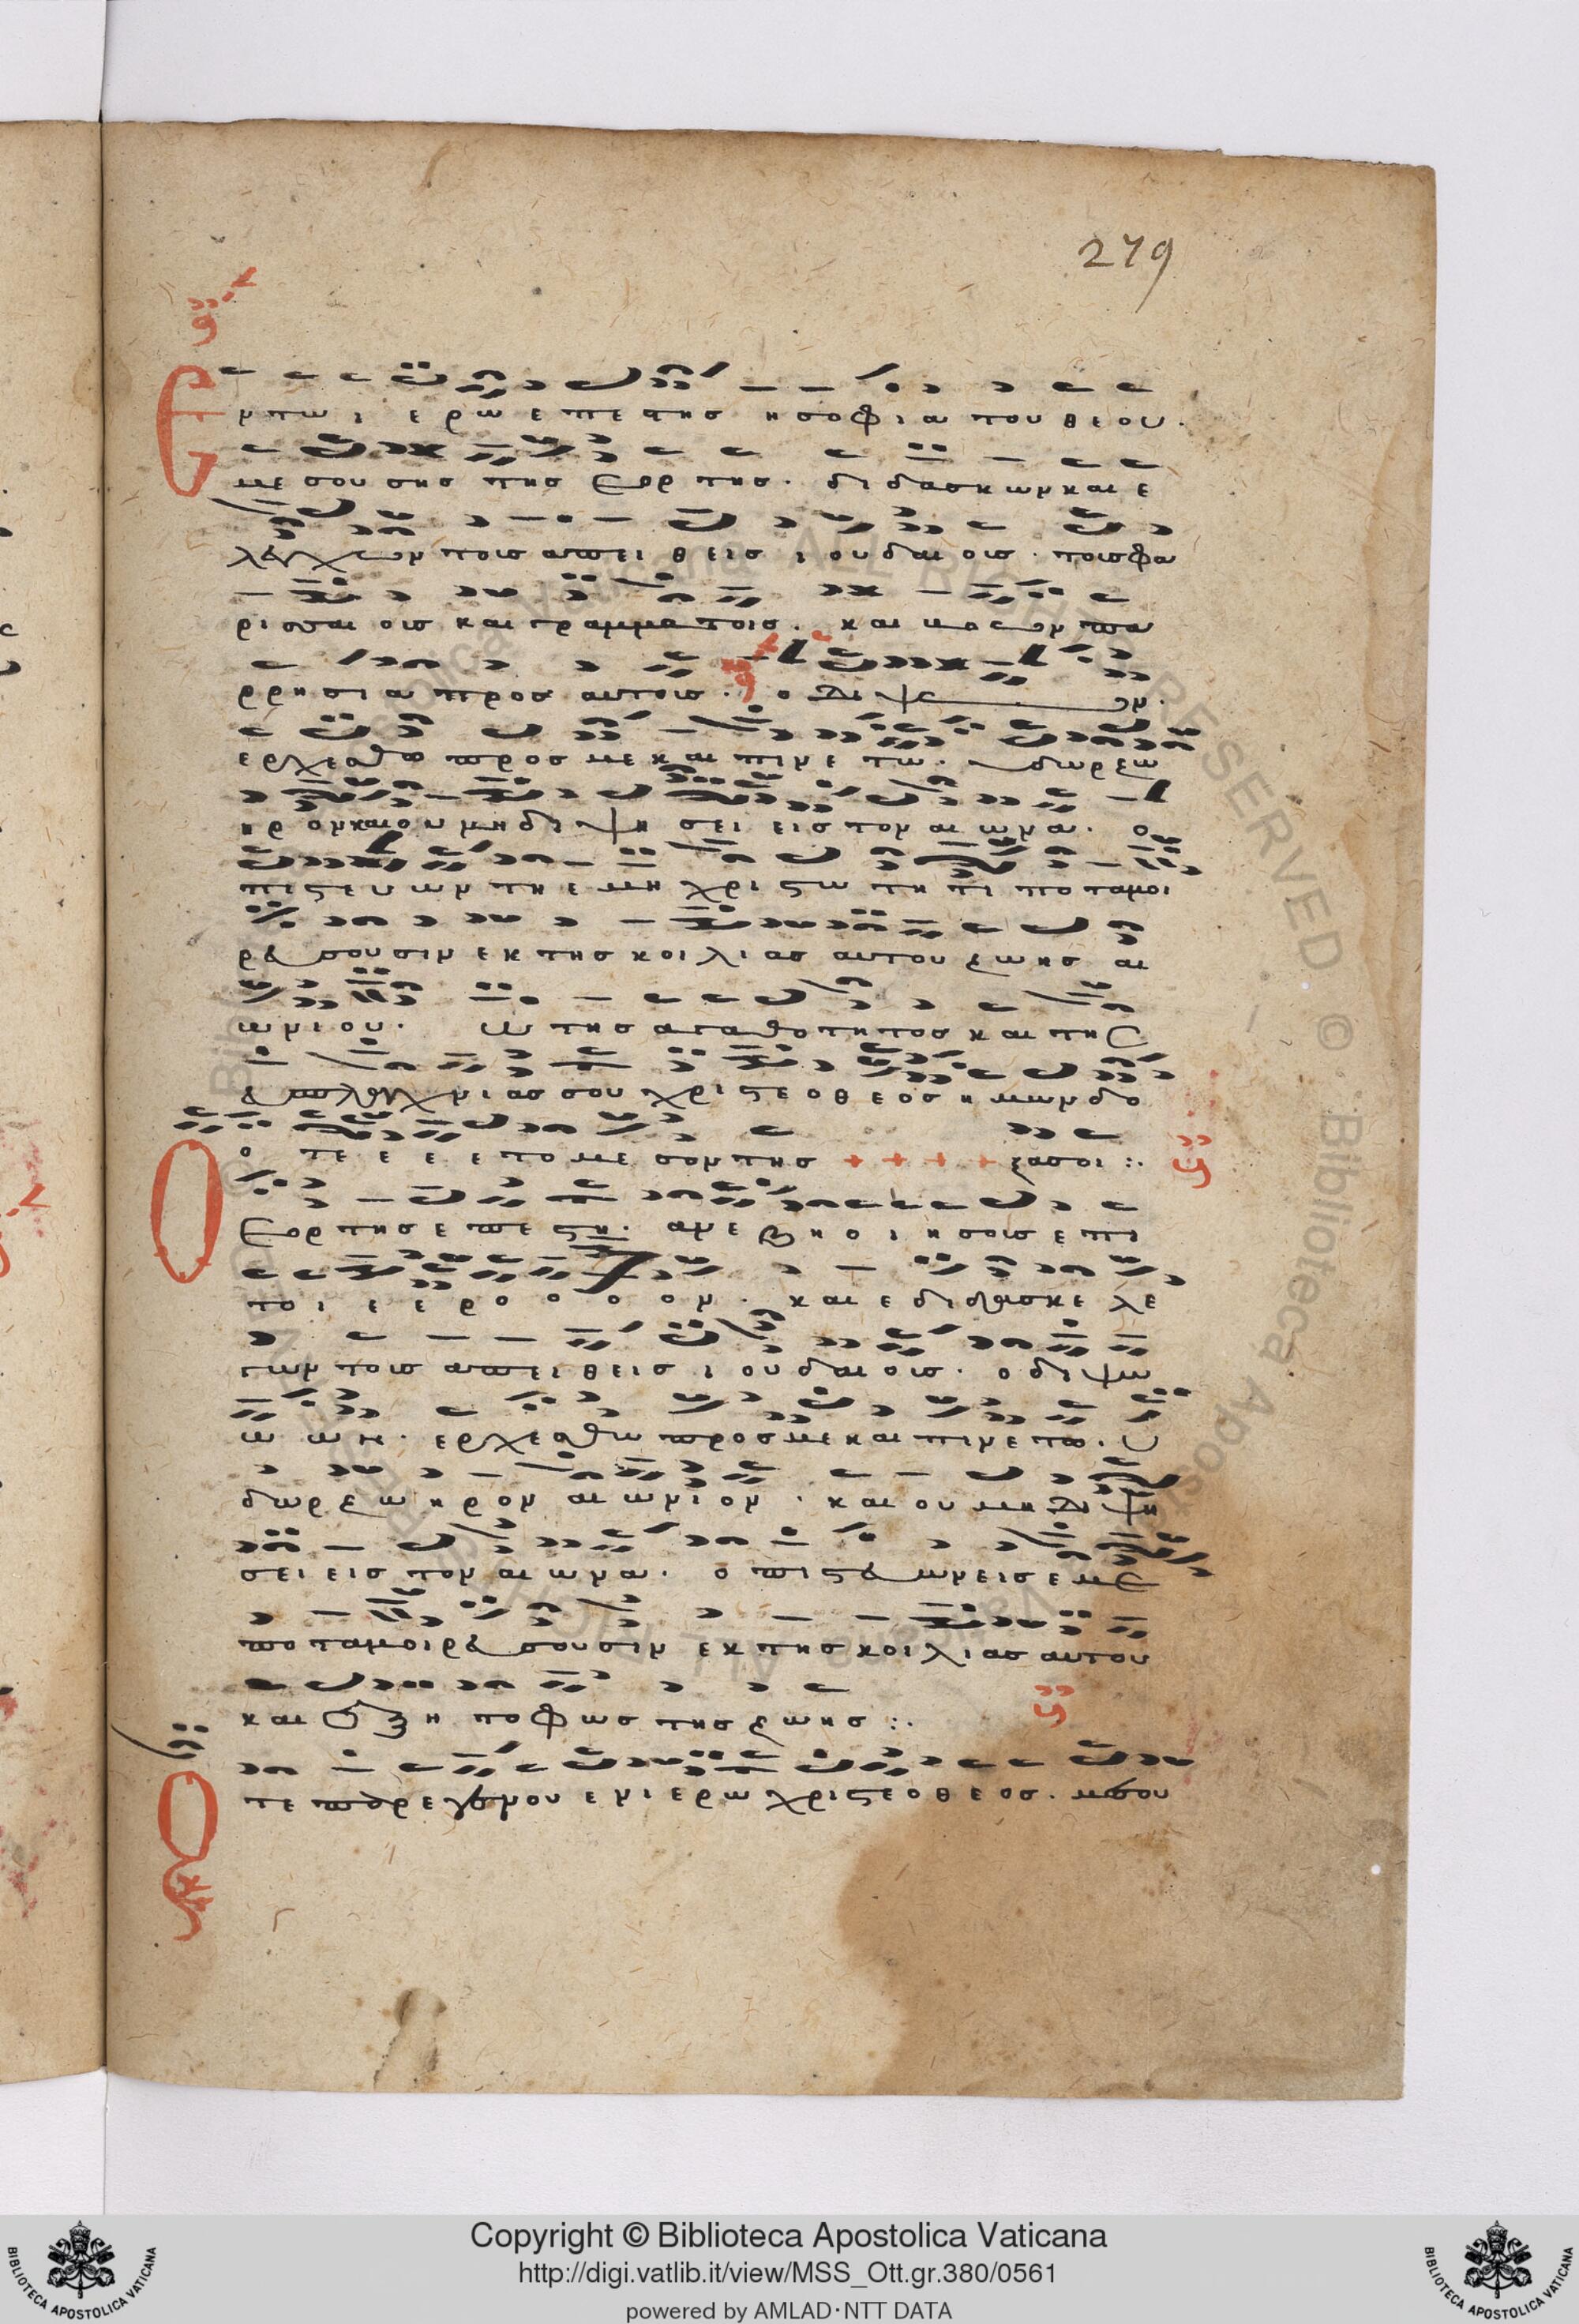 279
Ε ν τω ι ε ρω ε πε στης η σοφι α του θε ου.
με σου σης της εορ της. δι δασκων και ε
λεγχων τοις απει θεις ι ουδαι οις. τοις φα
ρι σαι οις και γραμμα τοις. και
ρρη σι α προς αυτοις. ο διψων.
ερχεσθω προς με και πινε τω. υδωρ ζω
η ρον και ου μη δι ψη σει εις τον αι ωνα. ο
πιστευ ων τη ε μη χρι στο τη τι πο ταμοι
ρευ σου σιν εκ της κοι λι ας αυτου ζω ης αι
ωνι ου. ω της α γα θο τη τος και της
ευσπλαγχνι ας σου χρι στε ο θε ος η μων δο
ξα σοι :.
Ο ο τε ε ε ε το με σον της + + + +
εορ της ε πε στη. ανε βη ο ι ησους ε πι
το ι ε ε ρο ο ο ο ον. και ε διδασκε λε
γων τοις απει θεις ι ουδαι οις. ο δι ψω
ω ων. ερχεσθω προς με και πινε τω. υ
δωρ ζω η ρον αι ωνι ον. και ου μη δι ψη
σει εις τον αι ωνα. ο πιστευ ων εις ε με
πο ταμοι ρευ σου σιν εκ της κοι λι ας αυτου
και εξει το φως της ζω ης :.
Ο τε πα ρε γενου εν ι ερω χρι στε ο θε ος. με σου
Copyright © Biblioteca Apostolica Vaticana
http://digi.vatlib.it/view/MSS_Ott.gr.380/0561
powered by AMLAD·NTT DATA
BIBLIOTECA APOSTOLICA VATICANA
BIBLIOTECA APOSTOLICA VATICANA